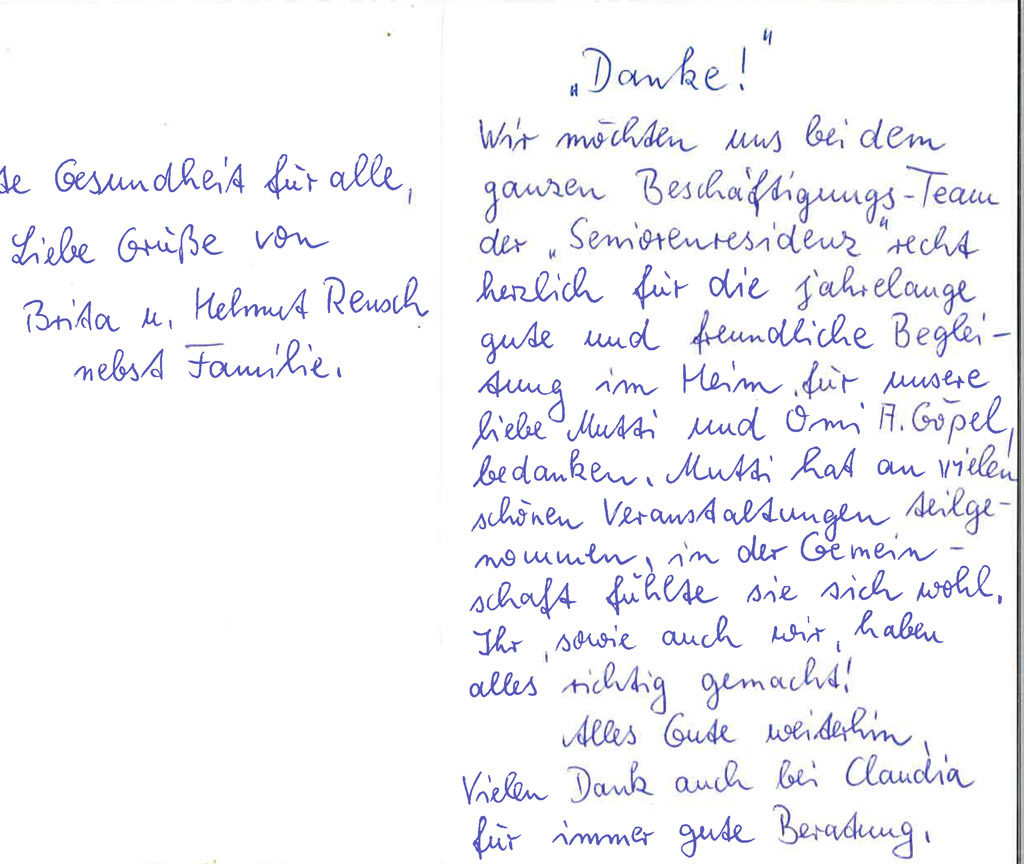 „Danke!"
Wir möchten uns bei dem
ganzen Beschäftigungs-Team
der „Seniorenresidenz" recht
herzlich für die jahrelange
gute und freundliche Beglei-
tung im Heim, für unsere
liebe Mutti und Omi A. Göpel,
bedanken. Mutti hat an vielen
schönen Veranstaltungen teilge-
nommen, in der Gemein-
schaft fühlte sie sich wohl.
Ihr, sowie auch wir, haben
alles richtig gemacht!
Alles Gute weiterhin,
Vielen Dank auch bei Claudia
für immer gute Beratung.
Gesundheit für alle,
Liebe Grüße von
Brita u. Helmut Rensch
nebst Familie.